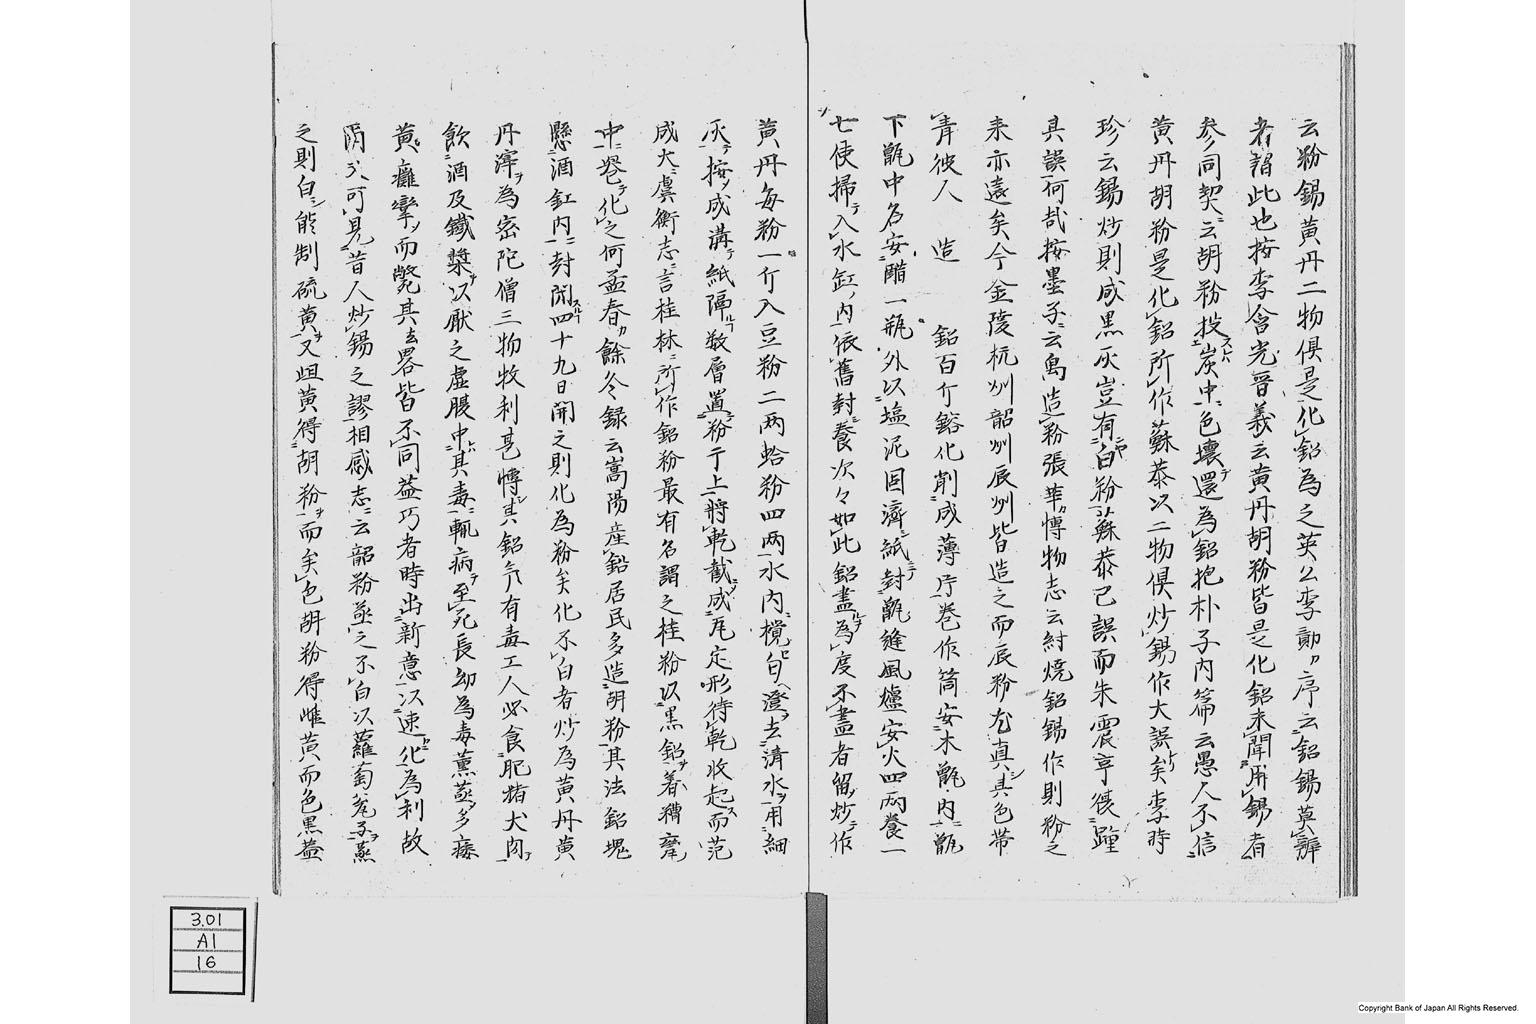 云粉錫黄丹二物倶是化鉛為之英公李勣序云鉛錫莫辨
者謂此也按李含光音義云黄丹胡粉皆是化鉛未聞用錫者
参同契云胡粉投炭中色壊還為鉛抱朴子内篇云愚人不信
黄丹胡粉是化鉛所作蘇恭以二物倶炒錫作大誤矣李時
珍云錫炒則成黒灰豈有白粉蘇恭已誤而朱震亨復踵
其誤何哉按墨子云禹造粉張華博物志云紂焼鉛錫作則粉之
来亦遠矣今金陵杭州韶州辰州皆造之而辰粉尤真其色帯
青彼人　造　　鉛百斤鎔化削成薄片巻作筒安木甑内甑
下甑中各安醋一瓶外以塩泥固濟紙封甑縫風爐安火四両養一
七使掃入水缸内依舊封養次々如此鉛盡為度不盡者留炒作
黄丹毎粉一斤入豆粉二両蛤粉四両水内攪匀澄去清水用細
灰按成溝紙隔数層置粉于上将乾截成瓦定形待乾收起而范
成大虞衡志言桂林所作鉛粉最有名謂之桂粉以黒鉛着糟甕
中罨化之何孟春餘冬録云嵩陽産鉛居民多造胡粉其法鉛塊
懸酒缸内封閉四十九日開之則化為粉矣化不白者炒為黄丹黄
丹滓為密陀僧三物收利甚博其鉛气有毒工人必食肥猪犬肉
飲酒及鐵漿以厭之虚腹中其毒輒病至死長幼為毒薫蒸多痿
黄癱攣而斃其法畧皆不同蓋巧者時出新意以速化為利故
尓可見昔人炒錫之謬相感志云韶粉蒸之不白以蘿蔔瓮子蒸
之則白能制硫黄又雌黄得胡粉而矣色胡粉得雌黄而色黒蓋
3.01
A1
16
Copyright Bank of Japan All Rights Reserved.